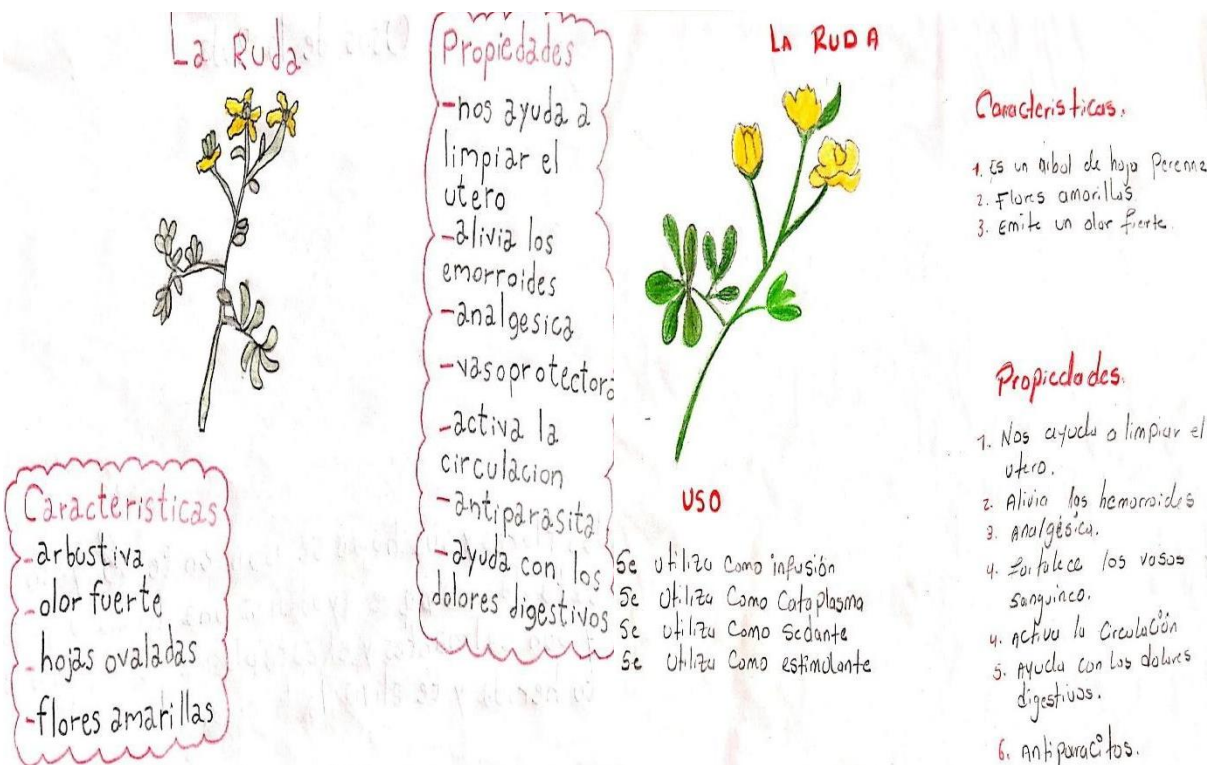 La Ruda
Caracteristicas
-arbustiva
-olor fuerte
-hojas ovaladas
-flores amarillas
Propiedades
-nos ayuda a
limpiar el
utero
-alivia los
emorroides
-analgesica
-vasoprotectora
-activa la
circulacion
-antiparasita
-ayuda con los
dolores digestivos
LA RUDA
USO
Se utiliza como infusión
Se utiliza Como Cataplasma
Se utiliza Como Sedante
Se utiliza Como estimulante
Caracteristicas.
1. Es un arbol de hoja Perenne
2. Flores amarillas
3. Emite un olor fuerte.
Propiedades.
1. Nos ayuda a limpiar el
utero.
2. Alivia los hemorroides
3. Analgésica.
4. Fortalece los vasos
sanguinco.
4. Activa la Circulación
5. Ayuda con los dolores
digestivos.
6. Antiparacitos.